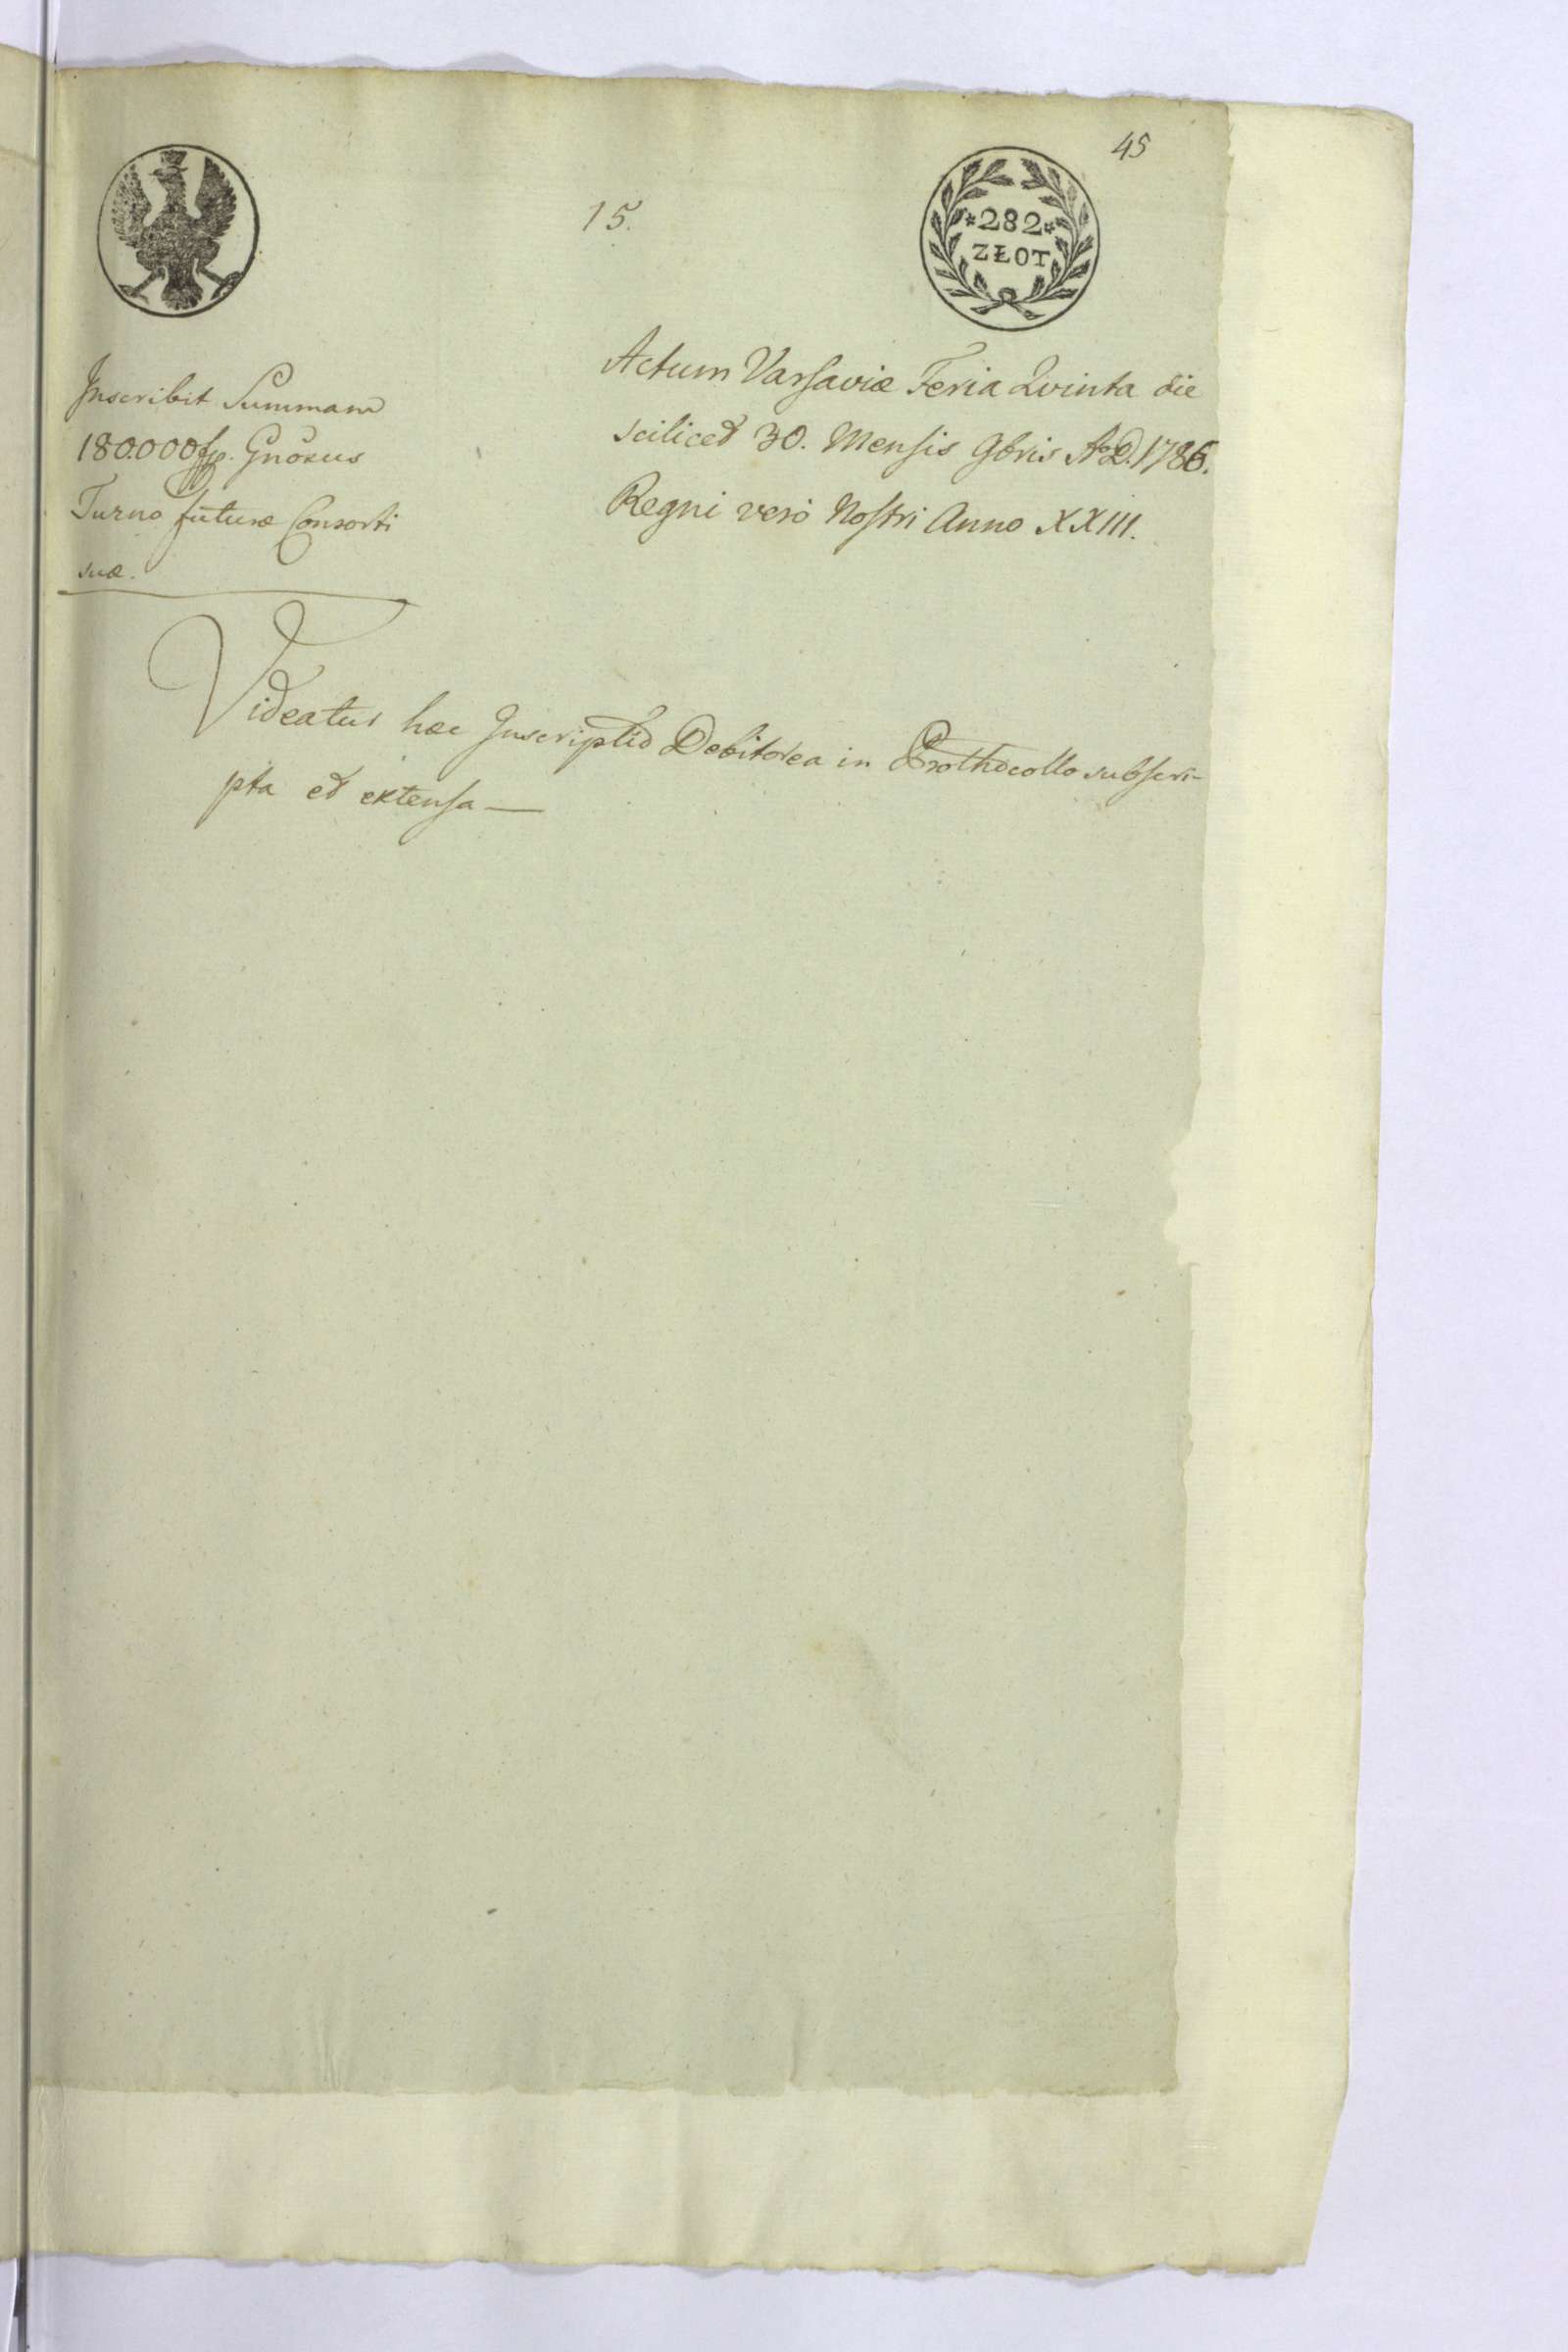 45
15.
*282*
ZŁOT
Inscribit Summam
180.000 fp. Gnosus
Turno futuræ Consorti
suæ.
Actum Varsaviæ Feria Qvinta die
scilicet 30. Mensis 9bris Ao D. 1786.
Regni verò Nostri Anno XXIII.
Videatur hæc Inscriptio Debitorea in Prothocollo subscri-
pta et extensa —